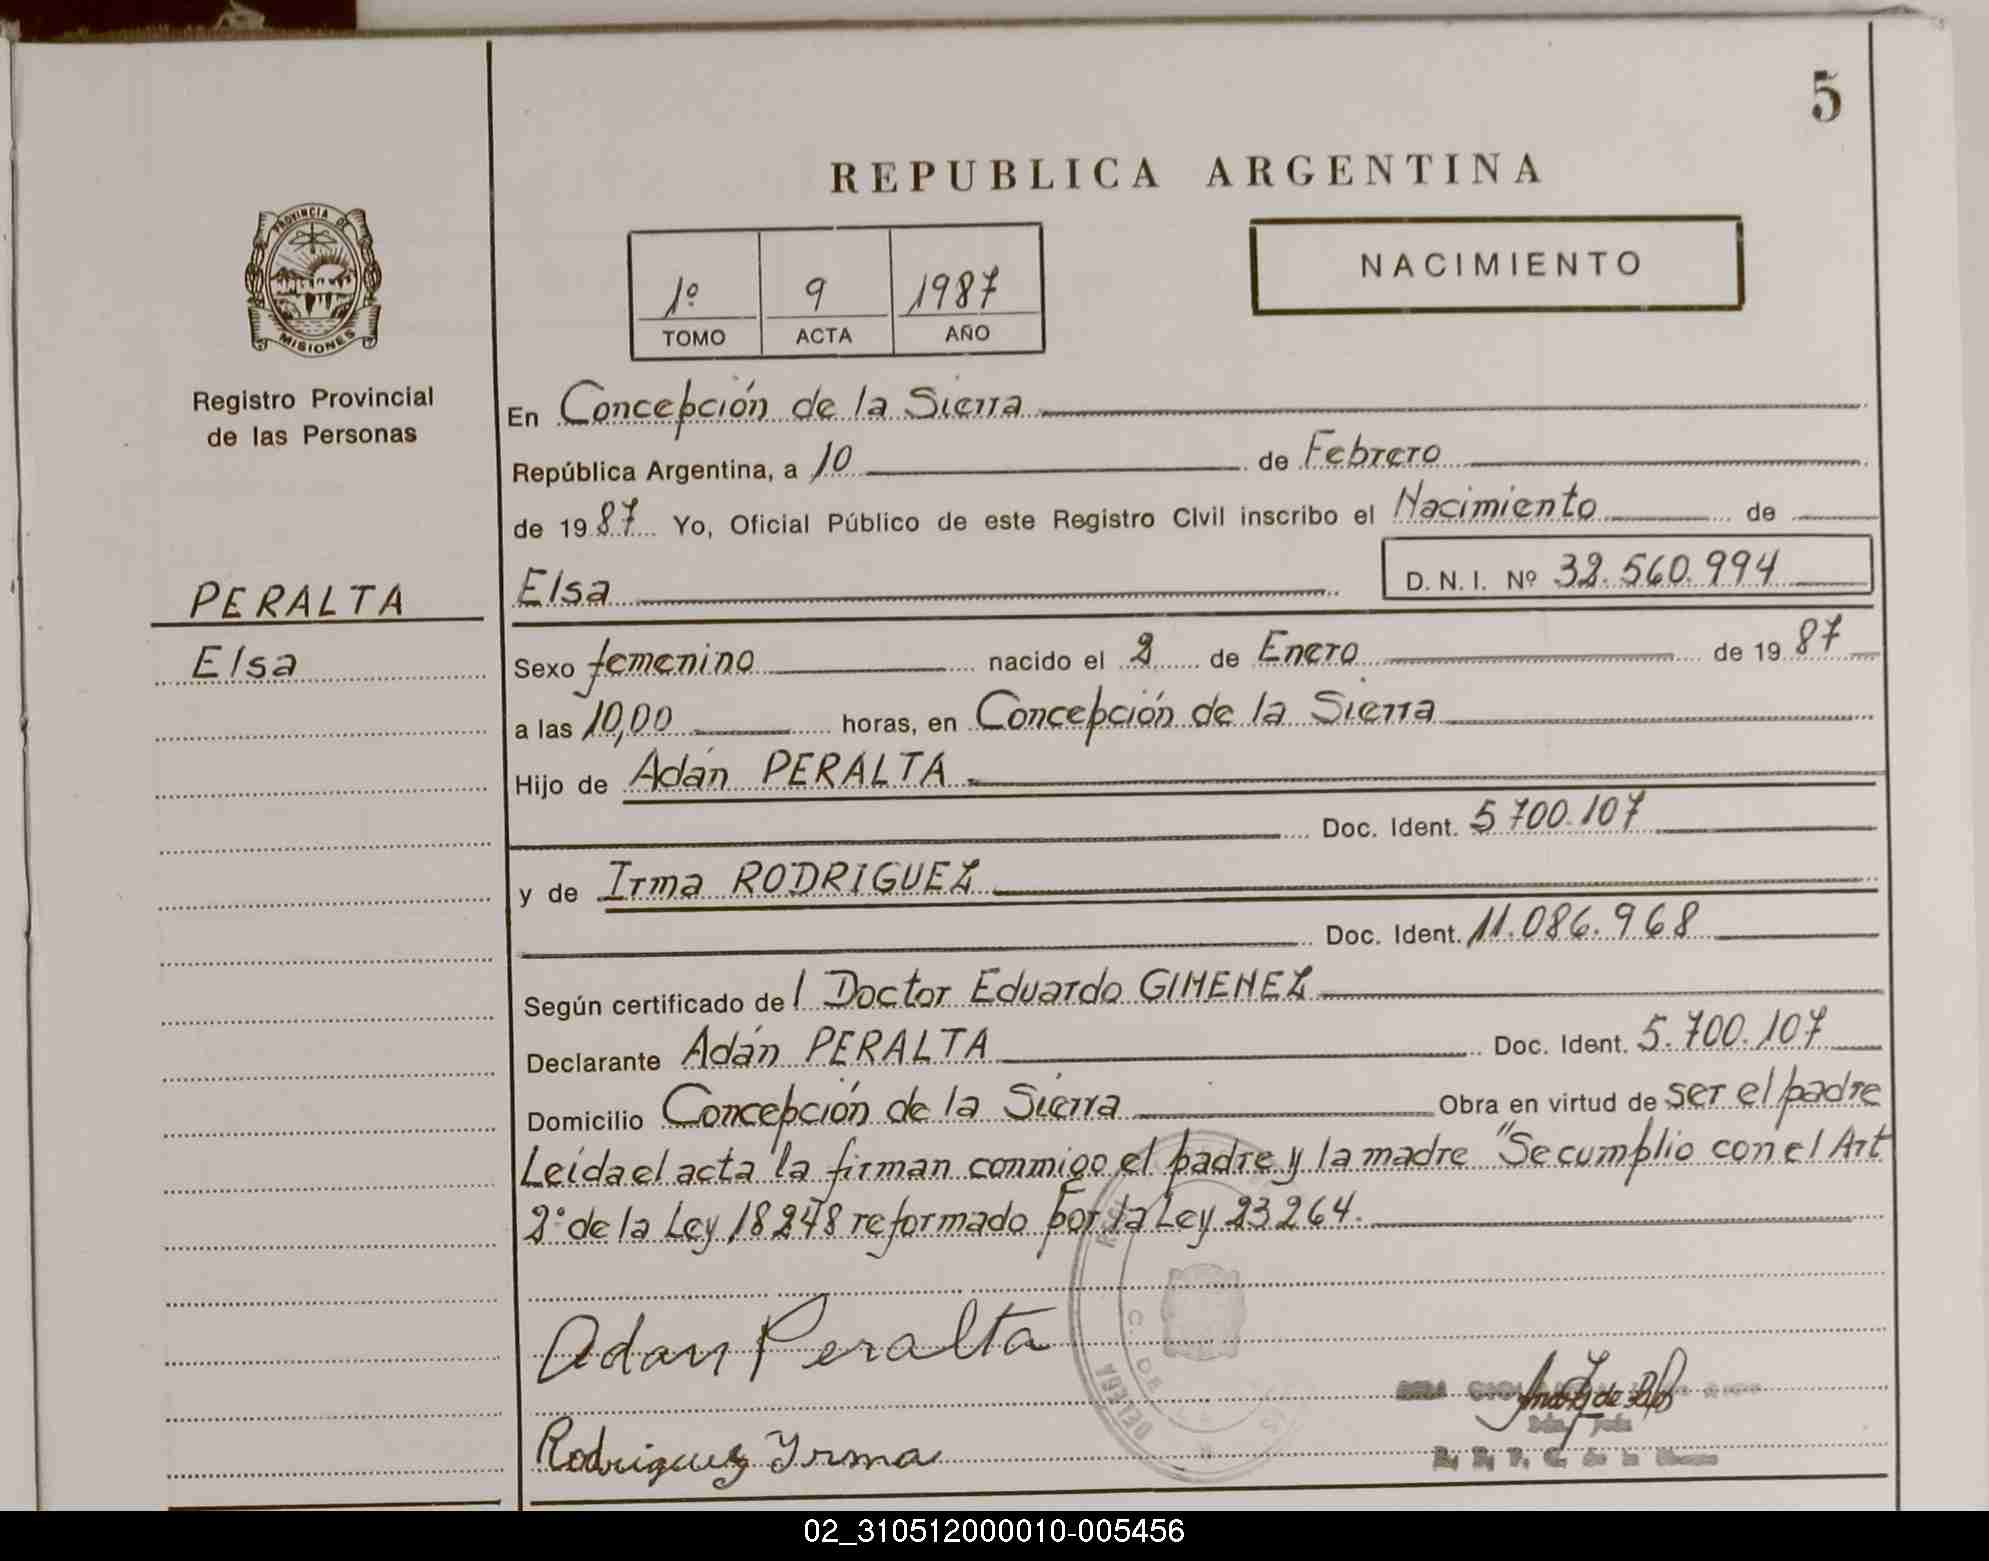 5
REPUBLICA ARGENTINA
PROVINCIA DE
MISIONES
Registro Provincial
de las Personas
1º 9 1987
TOMO ACTA AÑO
NACIMIENTO
En Concepción de la Sierra
República Argentina, a 10 de Febrero
de 1987 Yo, Oficial Público de este Registro Civil inscribo el Nacimiento de
PERALTA
Elsa
Elsa D. N. I. Nº 32.560.994
Sexo femenino nacido el 2 de Enero de 1987
a las 10,00 horas, en Concepción de la Sierra
Hijo de Adán PERALTA
Doc. Ident. 5700.107
y de Irma RODRIGUEZ
Doc. Ident. 11.086.968
Según certificado del Doctor Eduardo GIMENEZ
Declarante Adán PERALTA Doc. Ident. 5.700.107
Domicilio Concepción de la Sierra Obra en virtud de ser el padre
Leída el acta la firman conmigo el padre y la madre "Se cumplio con el Art
2º de la Ley 18248 reformado por la Ley 23264.
Adan Peralta
Rodriguez Yrma
02_310512000010-005456